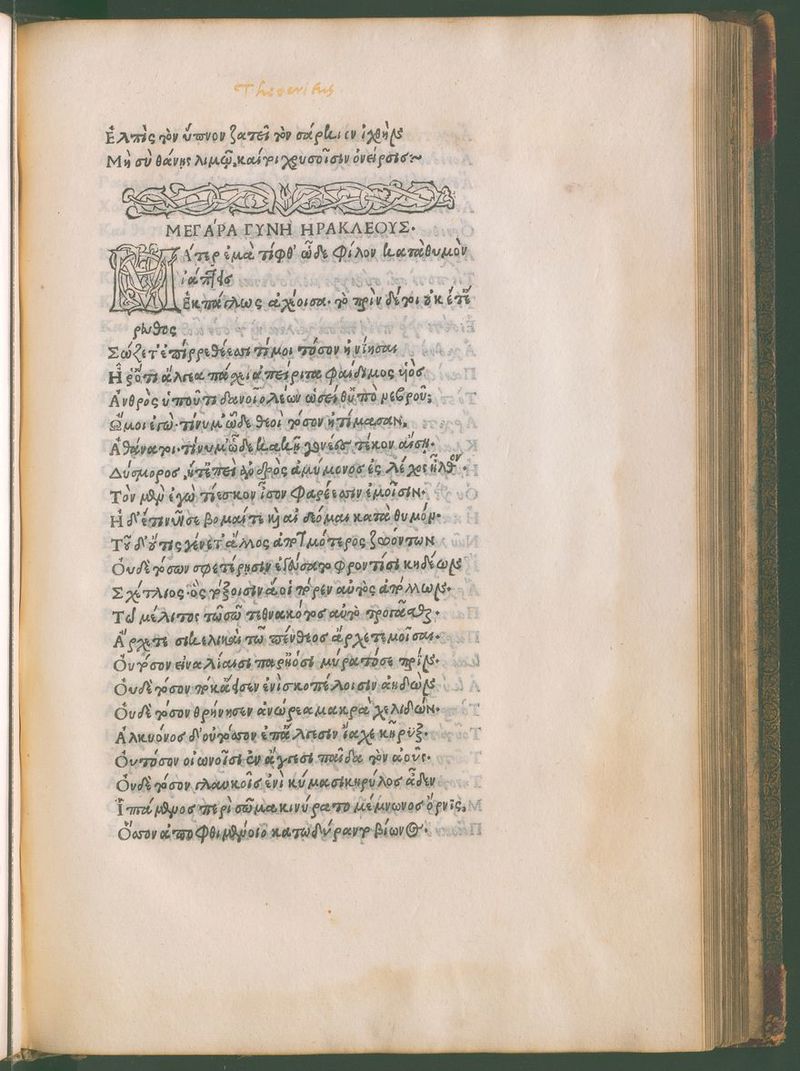 Theocritus
Ἐλπὶς τὸν ὕπνον ζατεῖ τὸν σάρκινον ἰχθὺν
Μὴ σὺ θάνῃς λιμῷ, καίτοι χρυσοῖσιν ὀνείροις
ΜΕΓΑΡΑ ΓΥΝΗ ΗΡΑΚΛΕΟΥΣ.
Μᾶτερ ἐμὰ τίφθ' ὧδε φίλον κατὰ θυμὸν
ἰάπτεις
Ἐκπάγλως ἀχέοισα. τὸ πρὶν δέ τοι οὐκ ἔτ' ἔ
ρευθος
Σώζετ' ἐπὶ ῥεθέεσσι τί μοι τόσον ἠνίησαι
Ἦ ῥ' ὅτι ἄλγεα πάσχει ἀπείριτα φαίδιμος υἱὸς
Ἀνδρὸς ὑπ' οὐτιδανοῖο λέων ὡσείθ' ὑπὸ νεβροῦ;
Ὤμοι ἐγὼ. τί νύ μ' ὧδε θεοὶ τόσον ἠτίμασαν,
Ἀθάνατοι. τί νύ μ' ὧδε κακῇ γονέες τέκον αἴσῃ.
Δύσμορος, ἥτ' ἐπεὶ ἀνδρὸς ἀμύμονος ἐς λέχος ἦλθον.
Τὸν μὲν ἐγὼ τίεσκον ἶσον φαέεσσιν ἐμοῖσιν.
Ἠ δ' ἔτι νῦν σέβομαί τε καὶ αἰδέομαι κατὰ θυμόν.
Τοῦ δ' οὔτις γένετ' ἄλλος ἀποτμότερος ζωόντων
Οὐδὲ τόσων σφετέρῃσιν ἐγεύσατο φροντίσι κηδέων
Σχέτλιος. ὃς τόξοισιν ἅ οἱ πόρεν αὐτὸς ἀπόλλων.
Τῶ μέλιτος τῶ σῶ τεθνακότος αὐτὸ τρυγᾶσθαι.
Ἄρχετε σικελικαὶ τῶ πένθεος ἄρχετε μοῖσαι.
Οὐ τόσον εἰναλίαισι παρ' ᾐόσι μύρατό σε πρίν.
Οὐδὲ τόσον ποκ' ἄεισεν ἐνὶ σκοπέλοισιν ἀηδών
Οὐδὲ τόσον θρήνησεν ἀν' ὤρεα μακρὰ χελιδών.
Ἀλκυόνος δ' οὐ τόσσον ἐπ' ἄλγεσιν ἴαχε κῆρυξ.
Οὐ τόσον οἰωνοῖσι ἐν ἄγκεσι παῖδα τὸν ἀοῦς.
Οὐδὲ τόσον γλαυκοῖς ἐνὶ κύμασι κηρύλος ᾆδεν
Ἱπτάμενος περὶ σῶμα κινύρατο μέμνωνος ὄρνις,
Ὅσσον ἀποφθιμένοιο κατωδύραντο βίωνος.